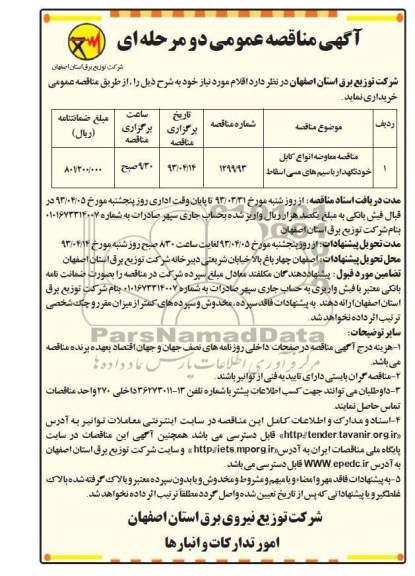 آگهی مناقصه عمومی دو مرحله ای
شرکت توزیع برق استان اصفهان
شرکت توزیع برق استان اصفهان در نظر دارد اقلام مورد نیاز خود به شرح ذیل را ، از طریق مناقصه عمومی
خریداری نماید.
ردیف موضوع مناقصه شماره مناقصه تاریخ برگزاری مناقصه ساعت برگزاری مناقصه مبلغ ضمانتنامه (ریال)
۱ مناقصه معاوضه انواع کابل خودنگهدار با سیم های مسی اسقاط ۱۲۹۹/۹۳ ۹۳/۰۴/۱۴ ۹/۳۰ صبح ۸۰۱/۲۰۰/۰۰۰
مدت دریافت اسناد مناقصه : از روز شنبه مورخ ۹۳/۰۳/۳۱ تا پایان وقت اداری روز پنجشنبه مورخ ۹۳/۰۴/۰۵ در
قبال فیش بانکی به مبلغ یکصد هزار ریال واریز شده بحساب جاری سپهر صادرات به شماره ۰۱۰۱۶۷۳۳۱۴۰۰۷
بنام شرکت توزیع برق استان اصفهان
مدت تحویل پیشنهادات : از روز پنجشنبه مورخ ۹۳/۰۴/۰۵ لغایت ساعت ۸:۳۰ صبح روز شنبه مورخ ۹۳/۰۴/۱۴
محل تحویل پیشنهادات : اصفهان چهار باغ بالا خیابان شریعتی دبیرخانه شرکت توزیع برق استان اصفهان
تضامین مورد قبول : پیشنهاددهندگان مکلفند معادل مبلغ سپرده شرکت در مناقصه را بصورت ضمانت نامه
بانکی معتبر یا فیش واریزی به حساب جاری سپهر صادرات به شماره ۰۱۰۱۶۷۳۳۱۴۰۰۷ بنام شرکت توزیع برق
استان اصفهان ارائه دهند . به پیشنهادات فاقد سپرده ، مخدوش و سپرده های کمتر از میزان مقرر و چک شخصی
ترتیب اثر داده نخواهد شد.
سایر توضیحات:
۱-هزینه درج آگهی مناقصه در صفحات داخلی روزنامه های نصف جهان و جهان اقتصاد بعهده برنده مناقصه
می باشد.
۲-مناقصه گران بایستی دارای تاییدیه فنی از توانیر باشند.
۳-داوطلبان می توانند جهت کسب اطلاعات بیشتر با شماره تلفن ۱۳-۳۶۲۷۳۰۱۱ داخلی ۲۷۰ واحد مناقصات
تماس حاصل نمایند.
۴-اسناد و مدارک و اطلاعات کامل این مناقصه در سایت اینترنتی معاملات توانیر به آدرس
«http://tender.tavanir.org.ir» قابل دسترسی می باشد همچنین آگهی این مناقصات در سایت
پایگاه ملی مناقصات ایران به آدرس «http://iets.mporg.ir» و سایت شرکت توزیع برق استان اصفهان
به آدرس WWW.epedc.ir قابل دسترسی می باشد.
۵-به پیشنهادات فاقد مهر و امضاء و یا مبهم و مشروط و مخدوش و یا بدون سپرده معتبر و یا لاک گرفته شده با لاک
غلط گیر و یا پیشنهاداتی که پس از تاریخ تعیین شده واصل گردد مطلقاً ترتیب اثر داده نخواهد شد.
شرکت توزیع نیروی برق استان اصفهان
امور تدارکات و انبارها
ParsNamadData
مرکز فرآوری اطلاعات پارس نماد داده ها